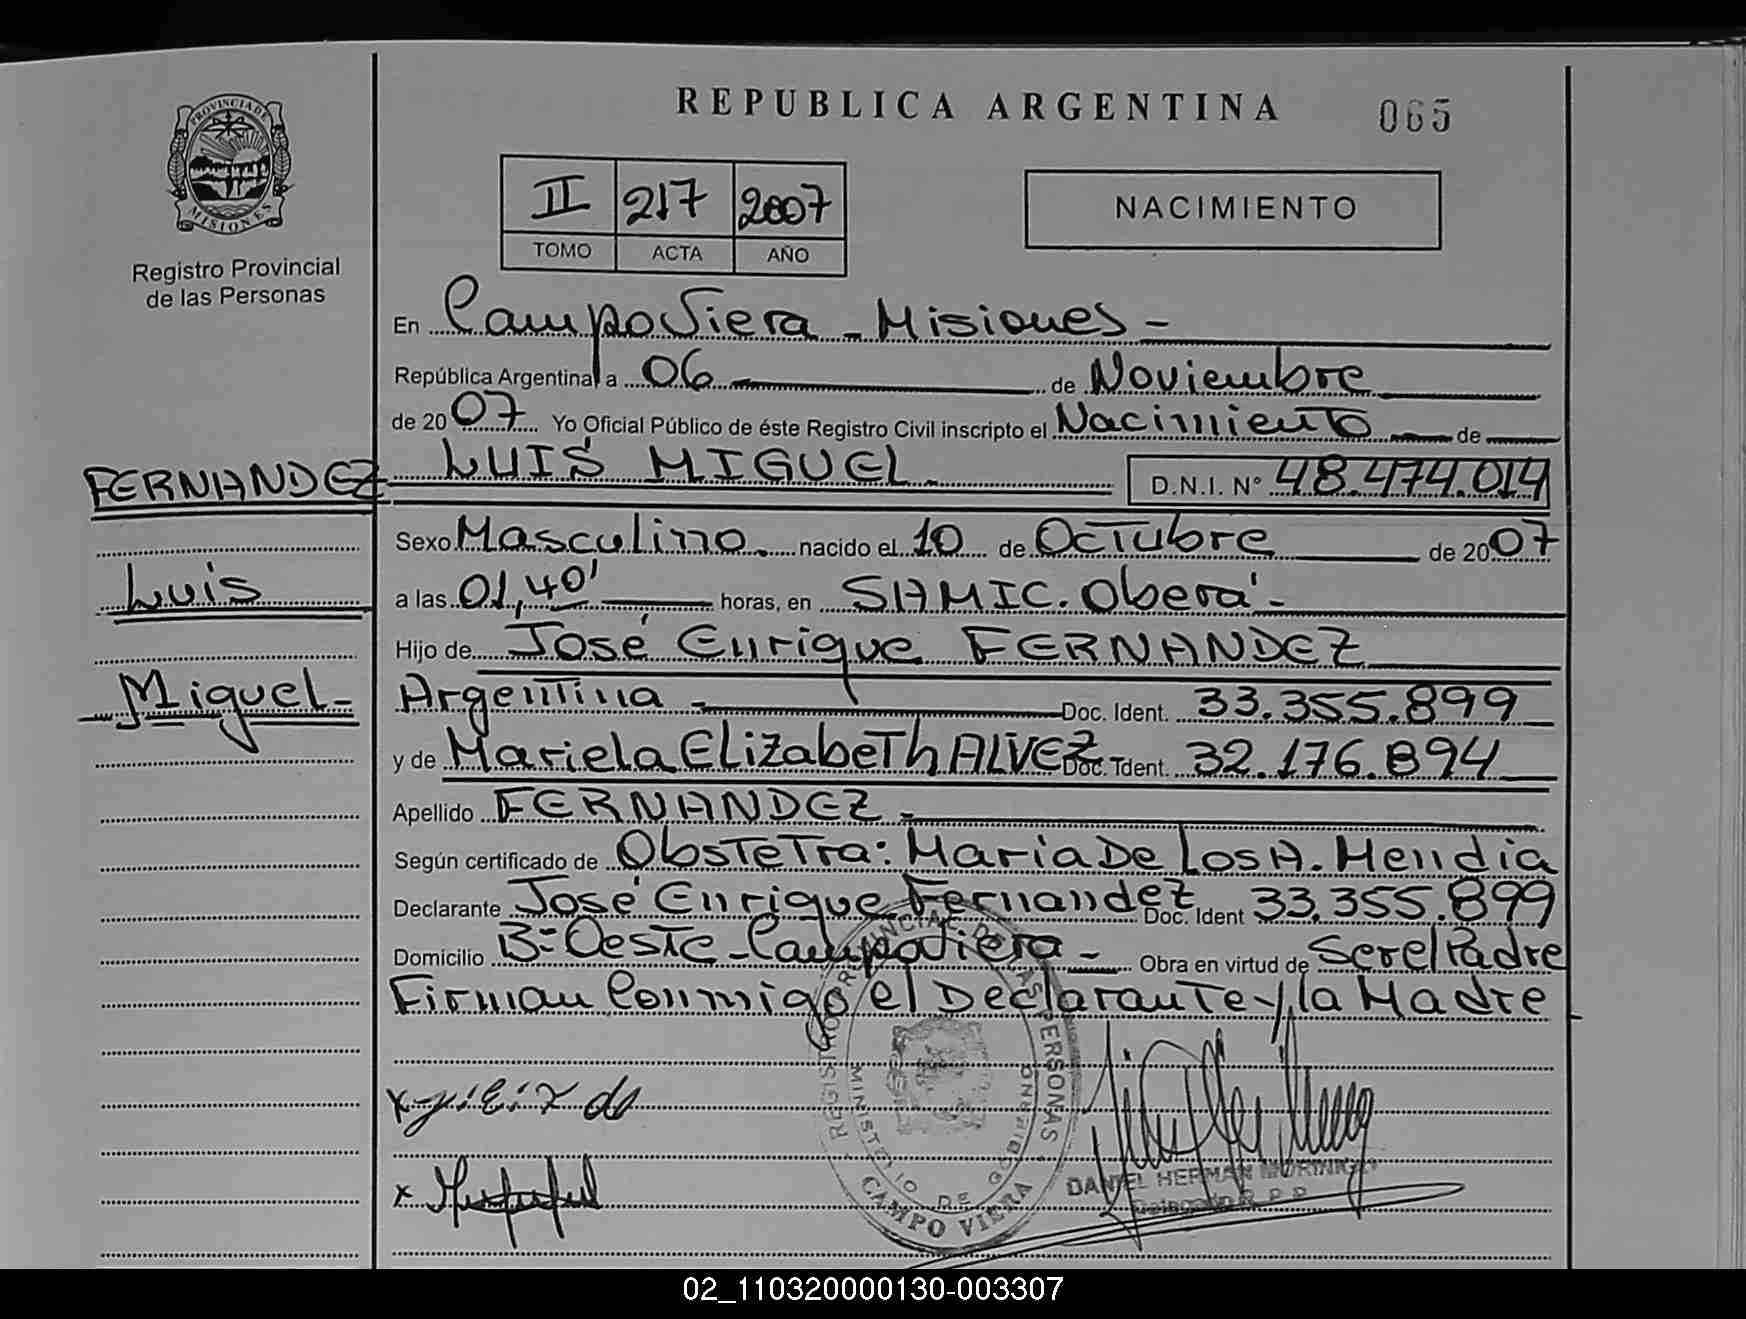 REPUBLICA ARGENTINA
065
PROVINCIA DE
MISIONES
Registro Provincial
de las Personas
II 217 2007
TOMO ACTA AÑO
NACIMIENTO
En Campo Viera - Misiones -
República Argentina a 06 de Noviembre
de 2007 Yo Oficial Público de éste Registro Civil inscripto el Nacimiento de
FERNANDEZ LUIS MIGUEL. D.N.I. N° 48.474.014
Sexo Masculino. nacido el 10 de Octubre de 2007
Luis
a las 01,40' horas, en SAMIC. Oberá -
Hijo de José Enrique FERNANDEZ
Miguel -
Argentina - Doc. Ident. 33.355.899
y de Mariela Elizabeth ALVEZ Doc. Ident. 32.176.894
Apellido FERNANDEZ -
Según certificado de Obstetra: Maria De Los A. Mendia
Declarante José Enrique Fernandez Doc. Ident 33.355.899
Domicilio B= Oeste - Campo Viera - Obra en virtud de Ser el Padre
Firman Conmigo el Declarante y la Madre
REGISTRO PROVINCIAL DE LAS PERSONAS
MINISTERIO DE GOBIERNO
CAMPO VIERA
x
x
DANIEL HERNAN MORINIGO
Delegado R.P.P.
02_110320000130-003307